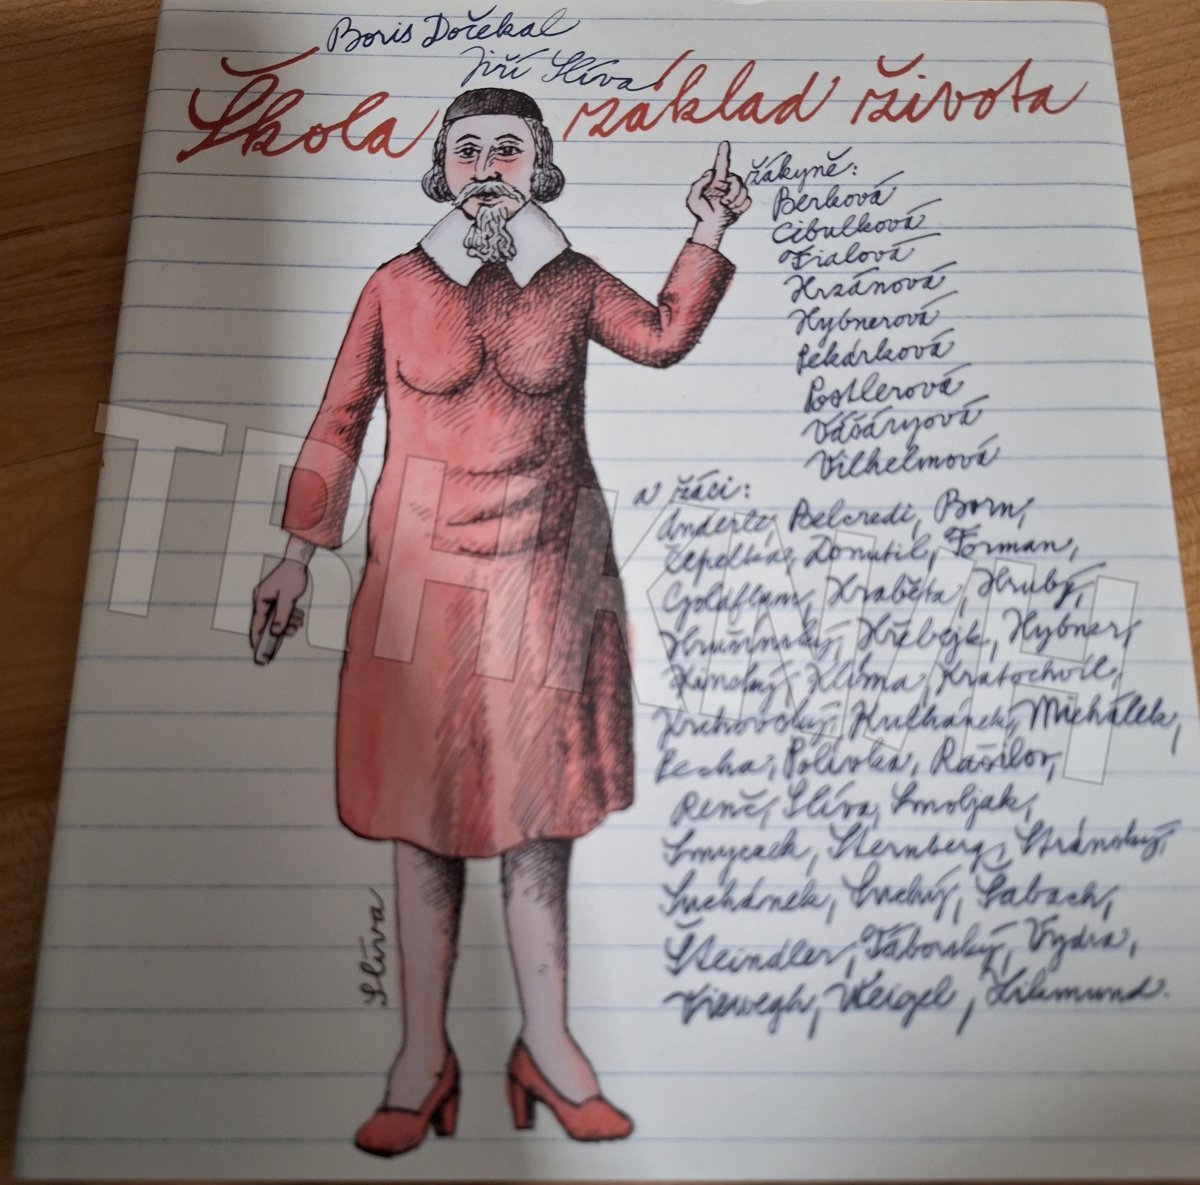 Boris Dočekal
Jiří Slíva
Škola základ života
žákyně:
Berková
Cibulková
Fialová
Hrzánová
Hybnerová
Pekárková
Postlerová
Vášáryová
Vilhelmová
a žáci:
Anderle, Belcredi, Born,
Čepelka, Donutil, Forman,
Goldflam, Hraběta, Hrubý,
Hrušínský, Hřebejk, Hybner,
Kinský, Klíma, Kratochvíl,
Krchovský, Kulhánek, Michálek,
Pecha, Polívka, Rašilov,
Renč, Slíva, Smoljak,
Smyczek, Sternberg, Stránský,
Suchánek, Suchý, Šabach,
Šteindler, Táborský, Vydra,
Viewegh, Weigel, Zikmund.
Slíva
TRHKNIH